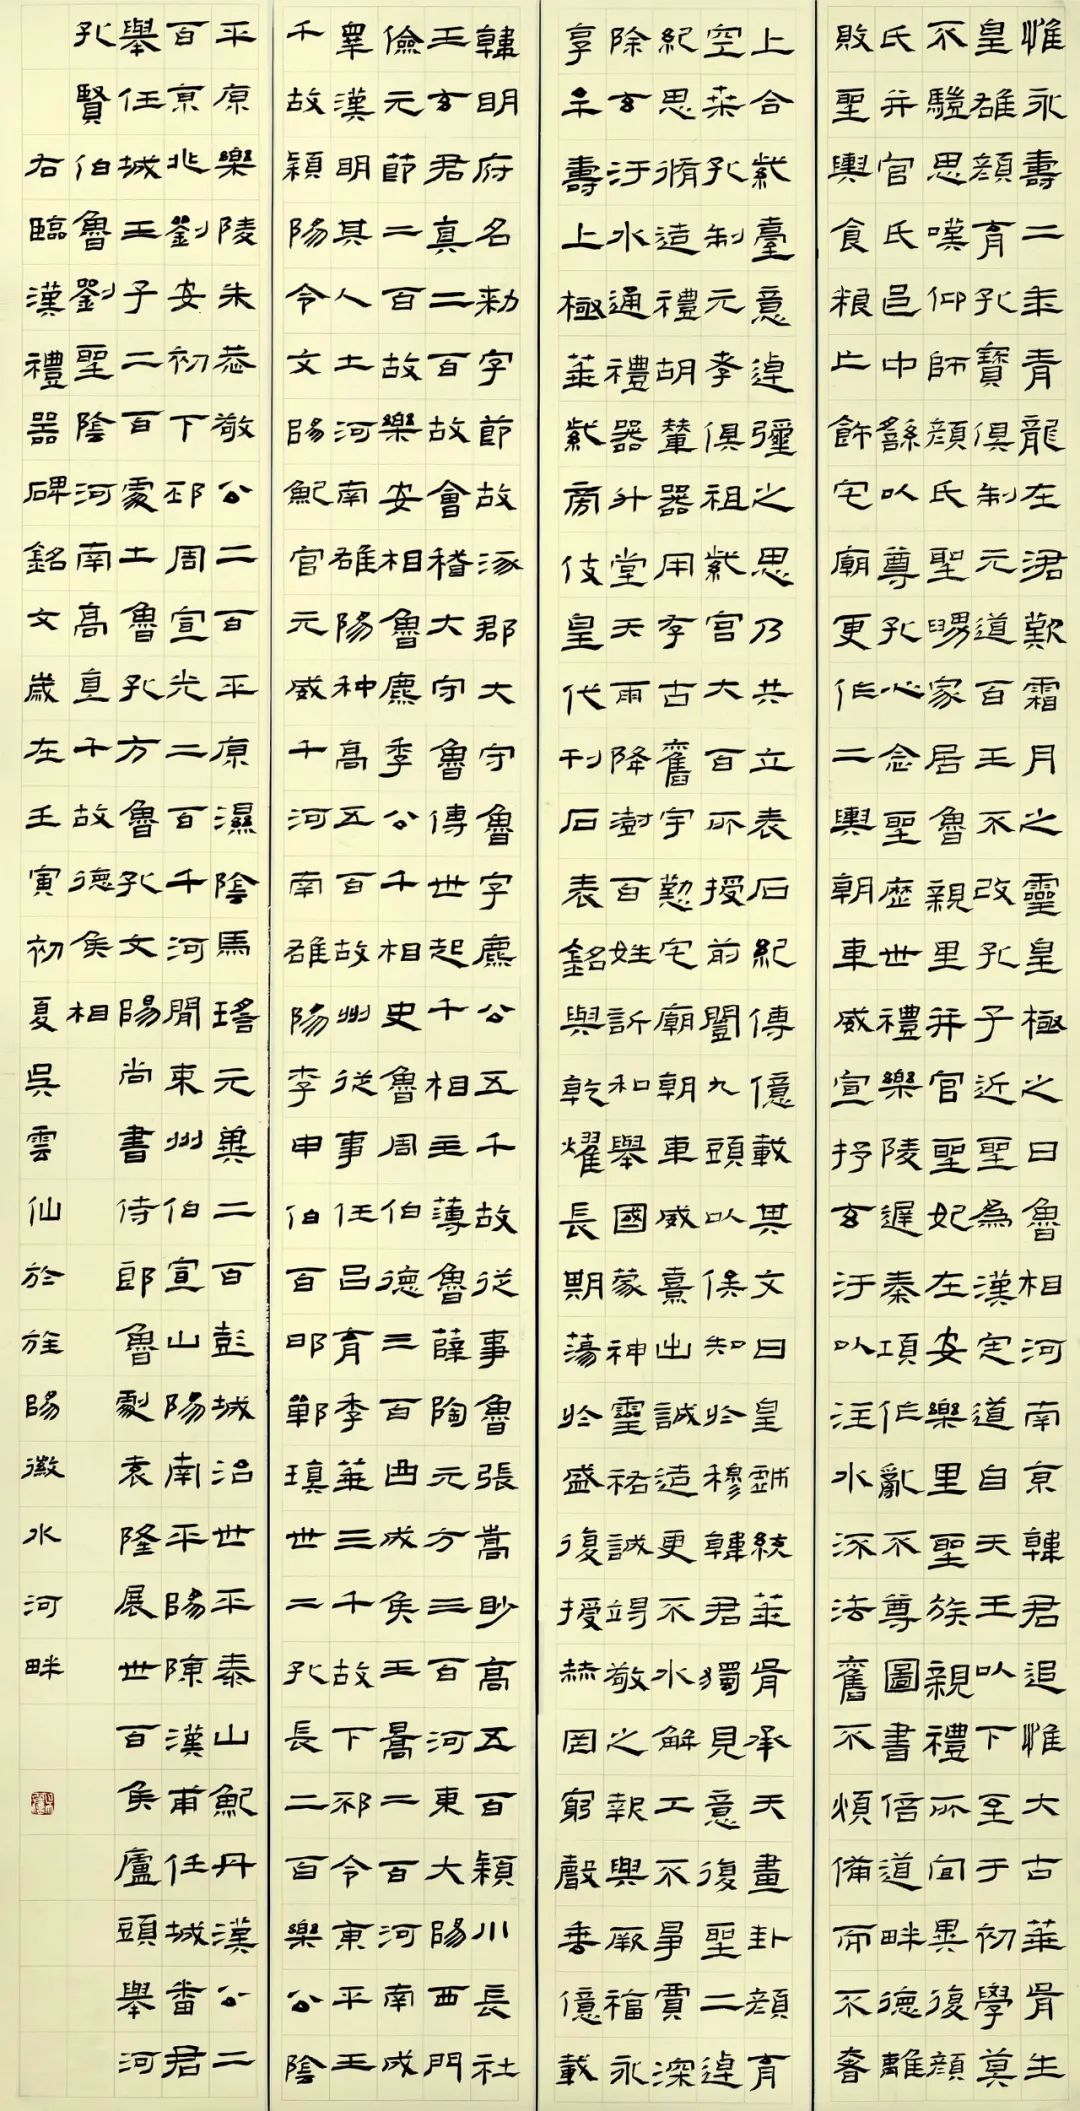 惟永壽二年青龍在涒歎霜月之靈皇極之日魯相河南京韓君追惟大古華胥生
皇雄顏育孔寶俱制元道百王不改孔子近聖為漢定道自天王以下至于初學莫
不驥思嘆仰師顏氏聖舅家居魯親里并官聖妃在安樂里聖族親禮所宜異復顏
氏并官氏邑中繇以尊孔心念聖歷世禮樂陵遲秦項作亂不尊圖書倍道畔德離
敗聖輿食粮亡飾宅廟更作二輿朝車威宣抒玄汙以注水流法舊不煩備而不奢
上合紫臺意逴彌之思乃共立表石紀傳億載其文曰皇戲統華胥承天畫卦顏育
空桒孔制元孝俱祖紫宮大百所授前闓九頭以俟知於穆韓君獨見意復聖二逴
紀思脩造禮胡輦器用存古舊宇慇宅廟朝車威熹出誠造更不水解工不爭賈深
除玄汙水通禮器升堂天雨降澍百姓訢和舉國蒙神靈祐誠竭敬之報與厥福永
享牟壽上極華紫旁伎皇代刊石表銘與乾燿長期蕩於盛復授赫罔窮聲垂億載
韓明府名勅字節故涿郡大守魯字麃公五千故從事魯張嵩眇高五百穎川長社
王玄君真二百故會稽大守魯傅世起千相主薄魯薛陶元方三百河東大陽西門
儉元節二百故樂安相魯麃季公千相史魯周伯德三百西成侯王暠二百河南成
睪漢明其人土河南雒陽种高五百故州從事任呂育季華三千故下邳令東平王
千故穎陽令文陽鮑官元威千河南雒陽李申伯百邯鄲瑱世二孔長二百樂公陰
平原樂陵朱恭敬公二百平原濕陰馬瑤元冀二百彭城治世平泰山鮑丹漢公二
百京兆劉安初下邳周宣光二百千河間東州伯宣山陽南平陽陳漢甫任城番君
舉任城王子二百處土魯孔方魯孔文陽尚書侍郎魯劇袁隆展世百侯盧頭舉河
孔賢伯魯劉聖陰河南高直千故德侯相
右臨漢禮器碑銘文歲在壬寅初夏吳雲仙於旌陽徽水河畔